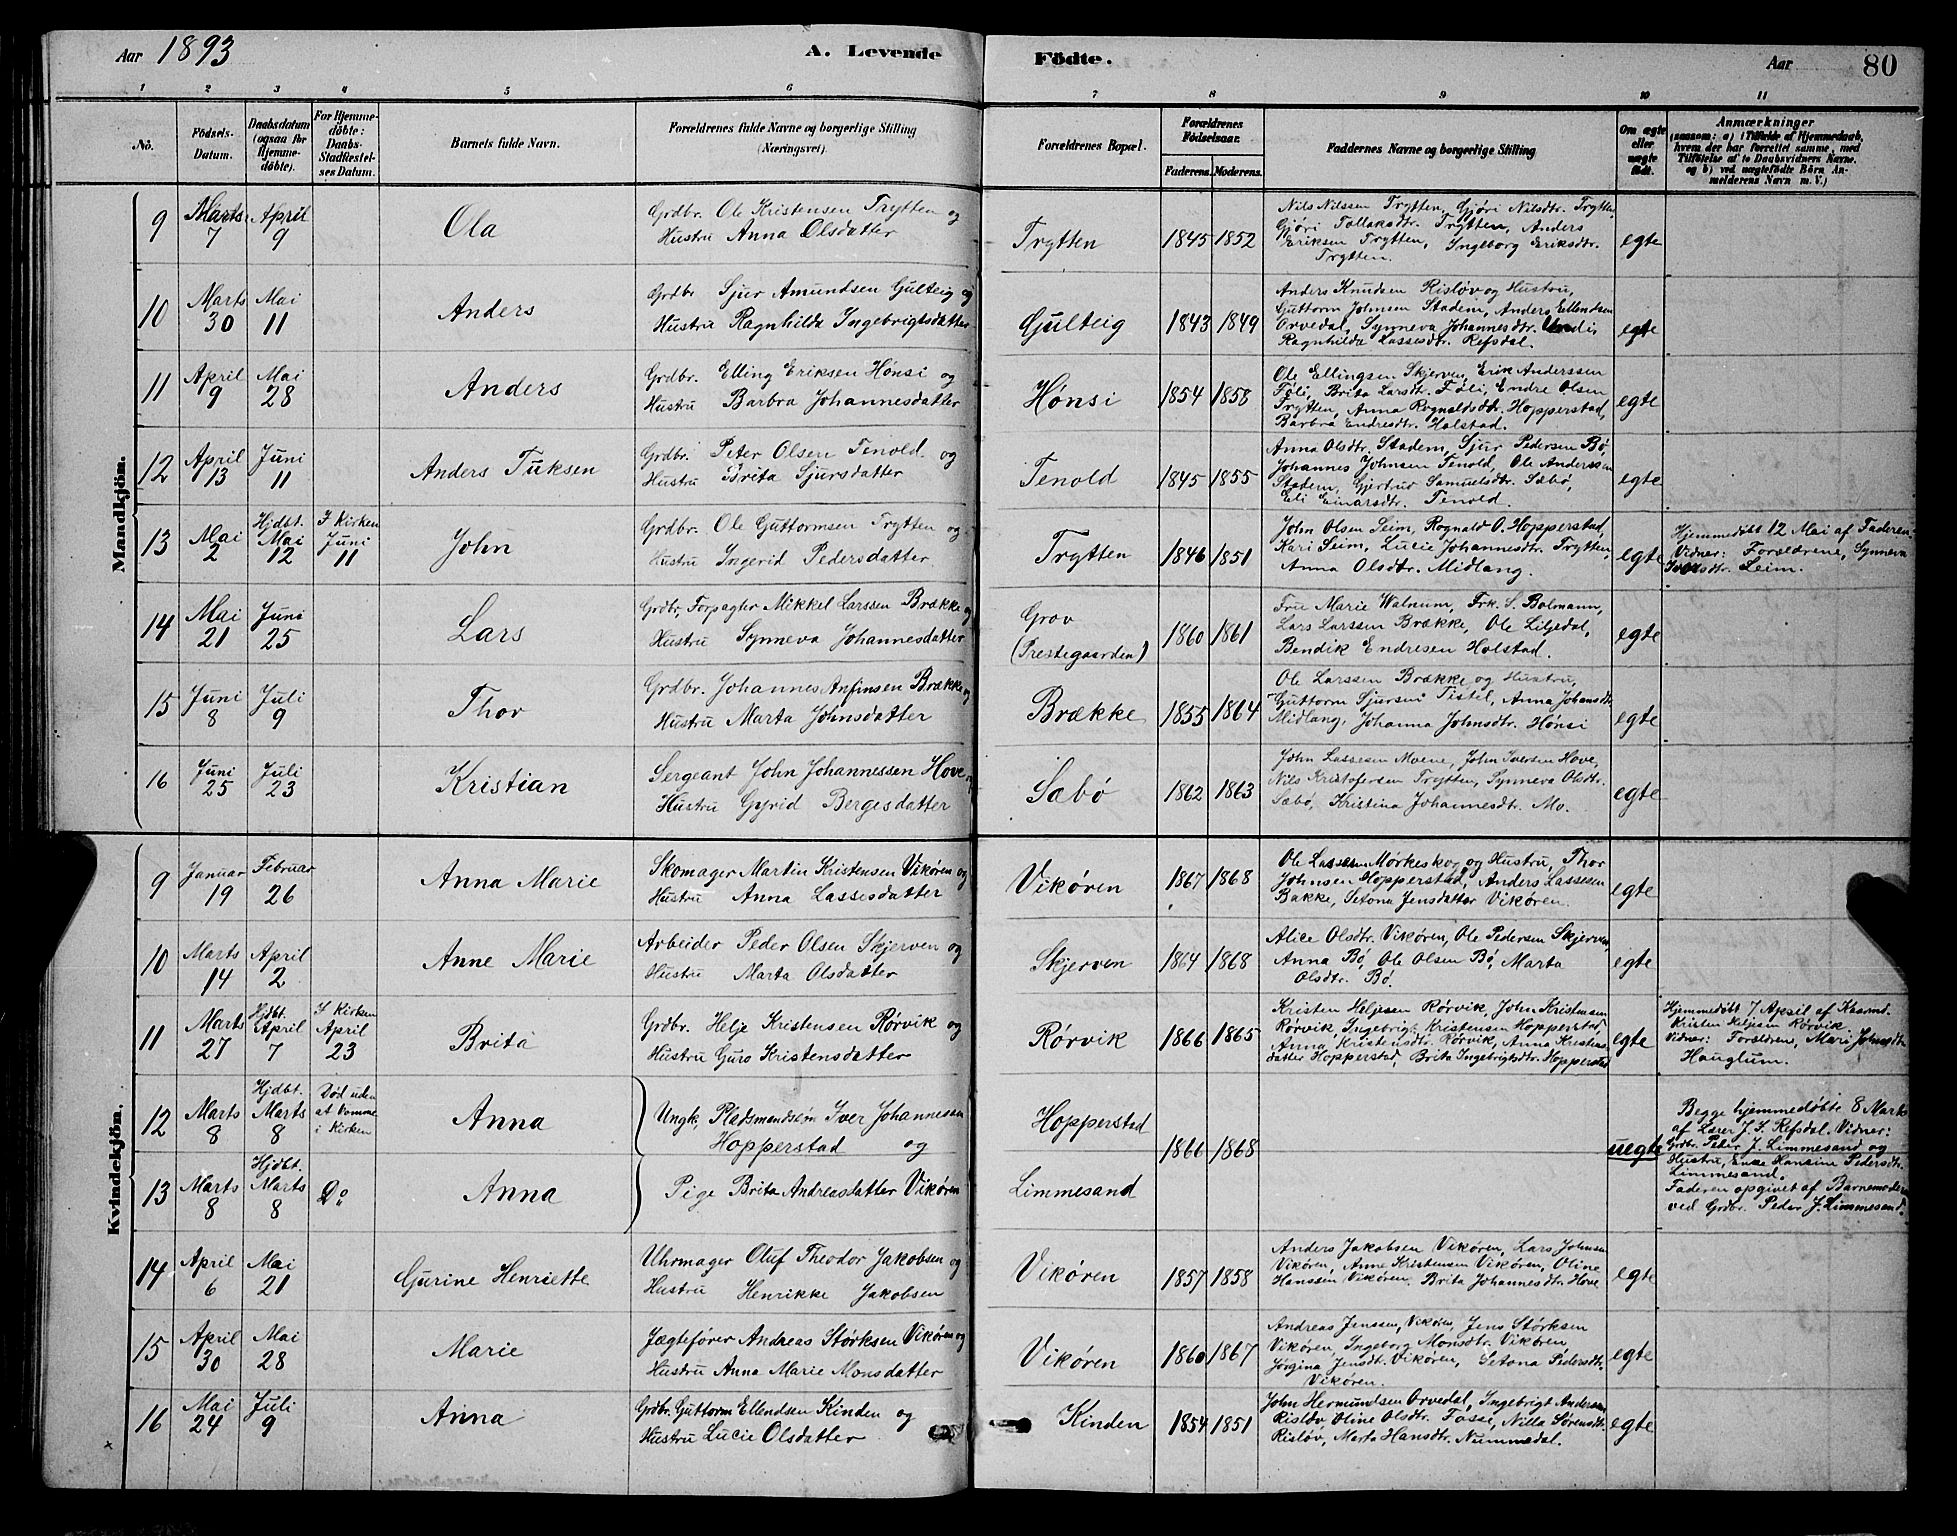 Aar 1893 A. Levende Födte. Aar 80
1 2 3 4 5 6 7 8 9 10 11
No. Födsels-Datum. Daabsdatum (ogsaa for Hjemme-döbte). For Hjemme-döbte: Daabs-Stadfestel-ses Datum. Barnets fulde Navn. Forældrenes fulde Navne og borgerlige Stilling (Næringsvei). Forældrenes Bopæl. Forældrenes Födselsaar. Faderens. Moderens. Faddernes Navne og borgerlige Stilling Om ægte eller uægte födt. Anmærkninger (saasom: a) i Tilfælde af Hjemmedaab, hvem der har forrettet samme, med Tilföielse af to Daabsvidners Navne, og b) ved uægtefödte Börn An-melderens Navn m. V.)
Mandkjön.
9 Marts 7 April 9 Ola Grdbr. Ole Kristensen Trytten og
Hustru Anna Olsdatter Trytten 1845 1852
Nils Nilssen Trytten, Gjöri Nilsdtr. Trytten,
Gjöri Tollaksdtr. Trytten, Anders
Eriksen Trytten, Ingeborg Eriksdtr.
Trytten. egte
10 Marts 30 Mai 11 Anders Grdbr Sjur Amundsen Gulteig og
Hustru Ragnhilda Ingebrigtsdatter Gulteig 1843 1849
Anders Knudsen Risløv og Hustru,
Guttorm Johnsen Stadem, Anders Ellendsen
Orvedal, Synneva Johannesdtr. Undi,
Ragnhilda Lassesdtr. Refsdal. egte
11 April 9 Mai 28 Anders Grdbr. Elling Eriksen Hønsi og
Hustru Barbra Johannesdatter Hønsi 1854 1858
Ole Ellingsen Skjerven, Erik Anderssen
Føli, Brita Larsdtr. Føli, Endre Olsen
Trytten, Anna Rognaldsdtr. Hopperstad,
Barbra Endresdtr. Holstad. egte
12 April 13 Juni 11 Anders Tuksen Grdbr. Peter Olsen Tenold og
Hustru Brita Sjursdatter Tenold 1845 1855
Anna Olsdtr. Stadem, Sjur Pedersen Bø,
Johannes Johnsen Tenold, Ole Anderssen
Stadem, Gjertrud Samuelsdtr. Sæbø,
Eli Einarsdtr. Tenold. egte
13 Mai 2 Hjdbt. Mai 12 I Kirken Juni 11 John Grdbr. Ole Guttormsen Trytten og
Hustru Ingerid Pedersdatter Trytten 1846 1851
John Olsen Seim, Rognald O. Hopperstad,
Kari Seim, Lucie Johannesdtr. Trytten,
Anna Olsdtr. Midlang. egte
Hjemmedøbt 12 Mai af Faderen.
Vidner: Forældrene, Synneva
Seim.
14 Mai 21 Juni 25 Lars Grdbr, Forpagter Mikkel Larssen Brække og
Hustru Synneva Johannesdatter Grov (Prestegaarden) 1860 1861
Fru Marie Walnum, Frk. S. Bolmann,
Lars Larssen Brække, Ole Liljedal,
Bendik Endresen Holstad. egte
15 Juni 8 Juli 9 Thor Grdbr. Johannes Anfinsen Brække og
Hustru Marta Johnsdatter Brække 1855 1864
Ole Larssen Brække og Hustru,
Guttorm Sjursen Tistel, Anna Johansdtr.
Midlang, Johanna Johnsdtr. Hønsi egte
16 Juni 25 Juli 23 Kristian Sergeant John Johannessen Hove og
Hustru Gyrid Bergesdatter Sæbø 1862 1863
John Lassesen Moene, John Iversen Hove,
Nils Kristofersen Trytten, Synneva Olsdtr.
Sæbø, Kristina Johannesdtr. Mo. egte
Kvindekjön.
9 Januar 19 Februar 26 Anna Marie Skomager Martin Kristensen Vikøren og
Hustru Anna Lassesdatter Vikøren 1867 1868
Ole Lassesen Mørkeskog og Hustru, Thor
Johnsen Hopperstad, Anders Lassesen
Bakke, Setona Jensdatter Vikøren. egte
10 Marts 14 April 2 Anne Marie Arbeider Peder Olsen Skjerven og
Hustru Marta Olsdatter Skjerven 1864 1868
Alice Olsdtr. Vikören, Ole Pedersen Skjerven,
Anna Bø, Ole Olsen Bø, Marta
Olsdtr. Bø. egte
11 Marts 27 Hjdbt. April 7 I Kirken April 23 Brita Grdbr. Helje Kristensen Rørvik og
Hustru Guro Kristensdatter Rørvik 1866 1865
Kristen Heljesen Rørvik, John Kristensen
Rørvik, Ingebrigt Kristensen Hopperstad,
Anna Kristensdtr. Rørvik, Anna Kristens-
datter Hopperstad, Brita Ingebrigtsdtr. Hopperstad egte
Hjemmedøbt 7 April af Kaarmd.
Kristen Heljesen Rørvik
Vidner: Forældrene, Mari Johnsdtr.
Hauglum.
12 Marts 8 Hjdbt. Marts 8 Død uden at komme i Kirken Anna Ungk, Pladsmandssøn Iver Johannessen
Hopperstad og Hopperstad 1866 1868 uegte
Begge hjemmedøbte 8 Marts
af Lærer J. S. Refsdal. Vidner:
Grdbr. Peder J. Limmesand og
Hustru, Enke Hansine Pedersdtr.
Limmesand.
Faderen opgivet af Barnemoderen
ved Grdbr. Peder J. Limmesand.
13 Marts 8 Hjdbt. Marts 8 Do Anna Pige Brita Andreasdatter Vikøren Limmesand
14 April 6 Mai 21 Gurine Henriette Uhrmager Oluf Theodor Jakobsen og
Hustru Henrikke Jakobsen Vikøren 1857 1858
Anders Jakobsen Vikøren, Lars Johnsen
Vikøren, Anne Kristensen Vikøren, Oline
Hanssen Vikøren, Brita Johannesdtr. Hove egte
15 April 30 Mai 28 Marie Jægtefører Andreas Størksen Vikøren og
Hustru Anna Marie Monsdatter Vikøren 1860 1867
Andreas Jenssen, Vikøren, Jens Størksen
Vikøren, Ingeborg Monsdtr. Vikøren
Jørgina Jensdt. Vikøren, Setona Pedersdtr.
Vikøren. egte
16 Mai 24 Juli 9 Anna Grdbr. Guttorm Ellendsen Kinden og
Hustru Lucie Olsdatter Kinden 1854 1851
John Hermundsen Orvedal, Ingebrigt Anderssen
Risløv, Oline Olsdtr. Fosse, Nilla Sørensdtr.
Risløv, Marta Hansdtr. Nummedal. egte